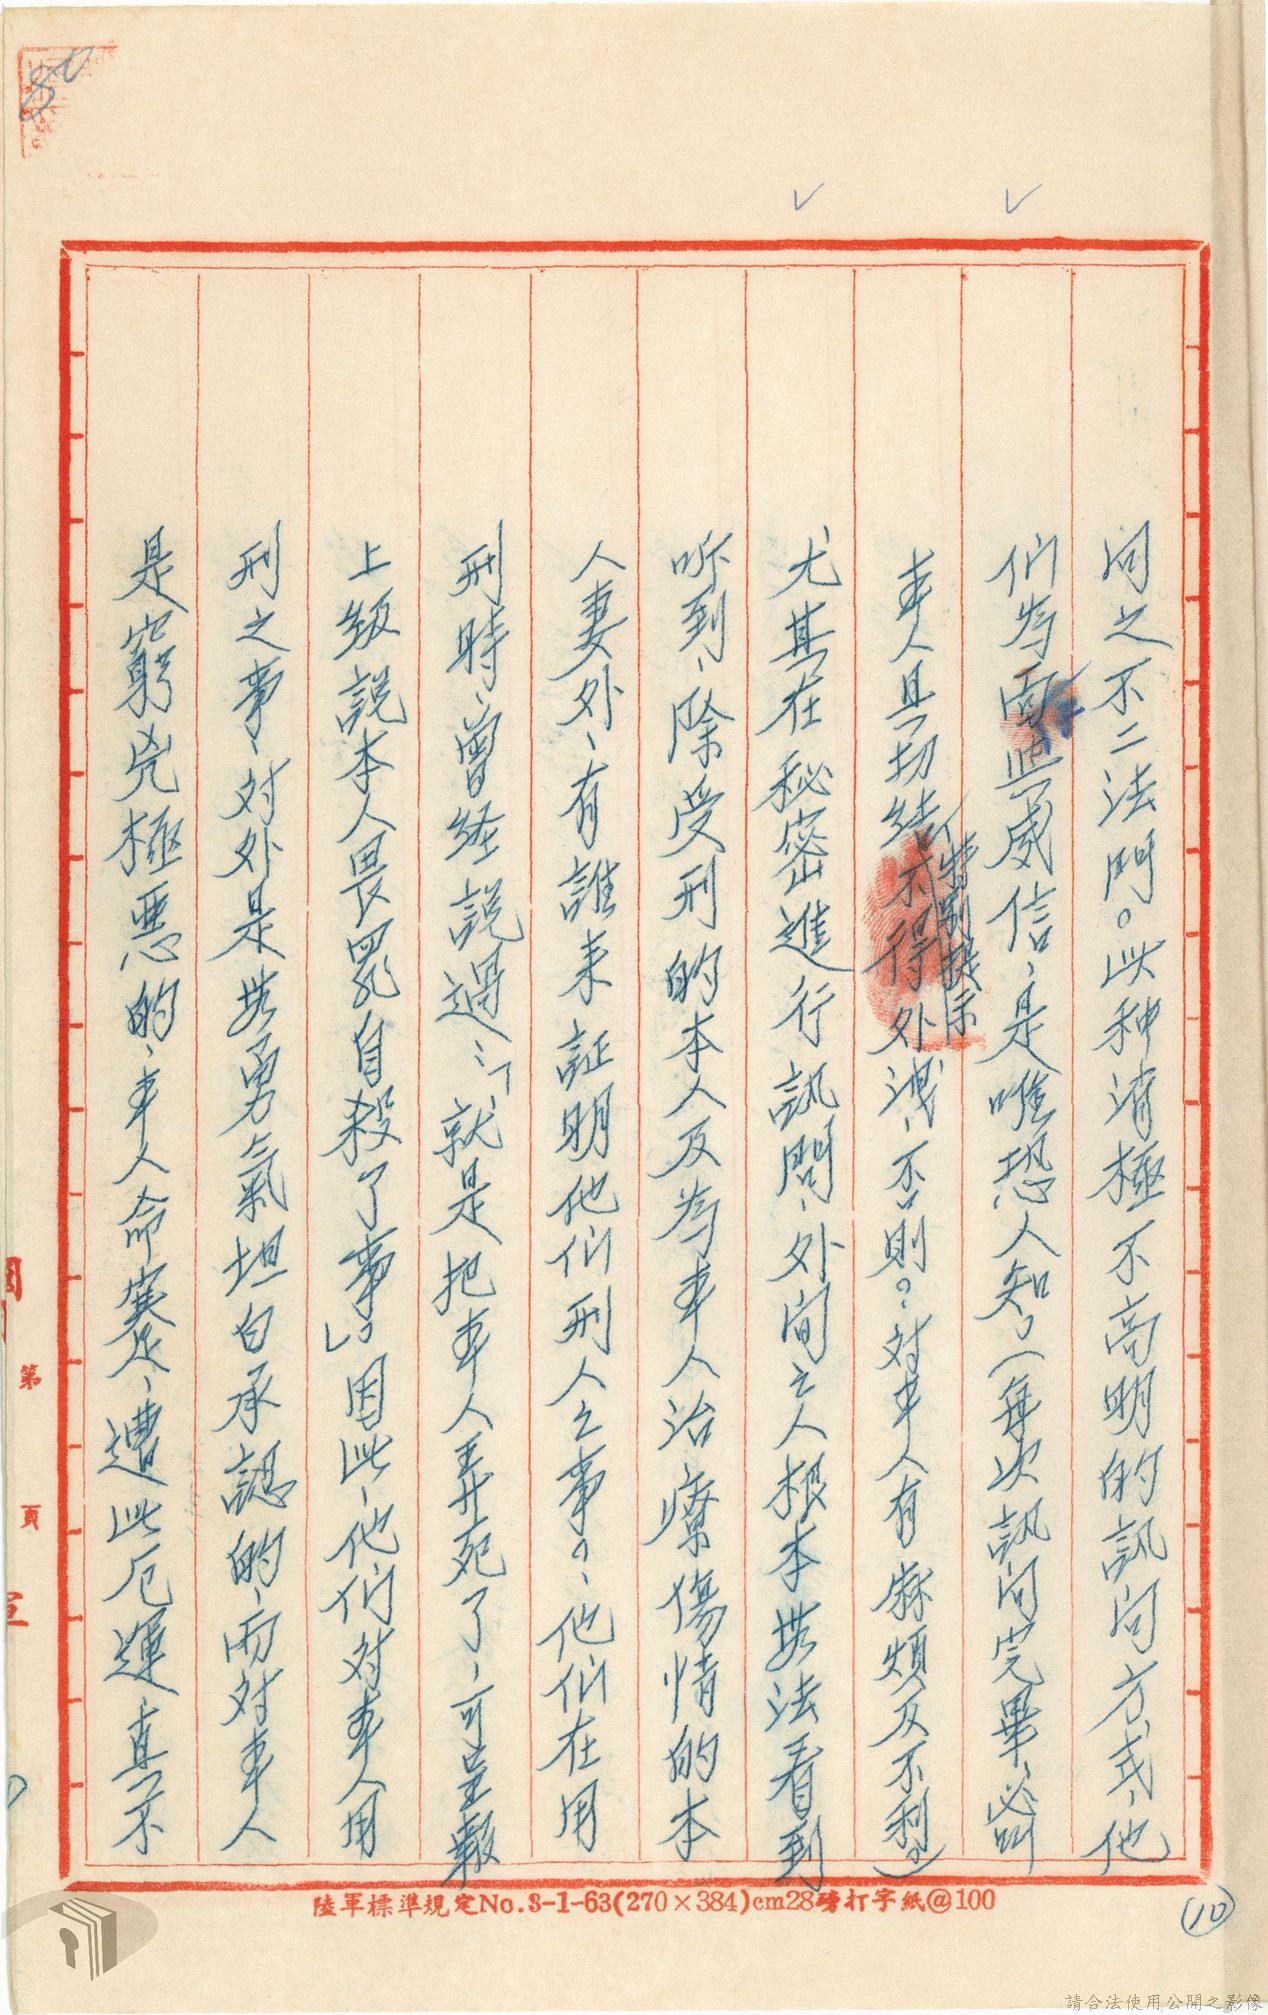 問之不二法門。此种消極不高明的訊问方式、他
们为威信、是唯恐人知、(每次訊问完畢、必叫
本人具切结不得外洩、否則。对本人有麻煩及不利。)
特別提示
尤其在秘密進行訊問、外间之人根本無法看到
听到、除受刑的本人及為本人治療傷情的本
人妻外、有誰来証明他们刑人之事。、他们在用
刑時、曾经說過:「就是把本人弄死了、可呈報
上级說本人畏罪自殺了事」。因此、他们对本人用
刑之事、对外是無勇氣坦白承認的、而对本人
是窮兇極惡的、本人命蹇、遭此厄運、真不
⑩
80
第 頁
陸軍標準規定No.3-1-63(270×384)cm28磅打字紙@100
請合法使用公開之影像